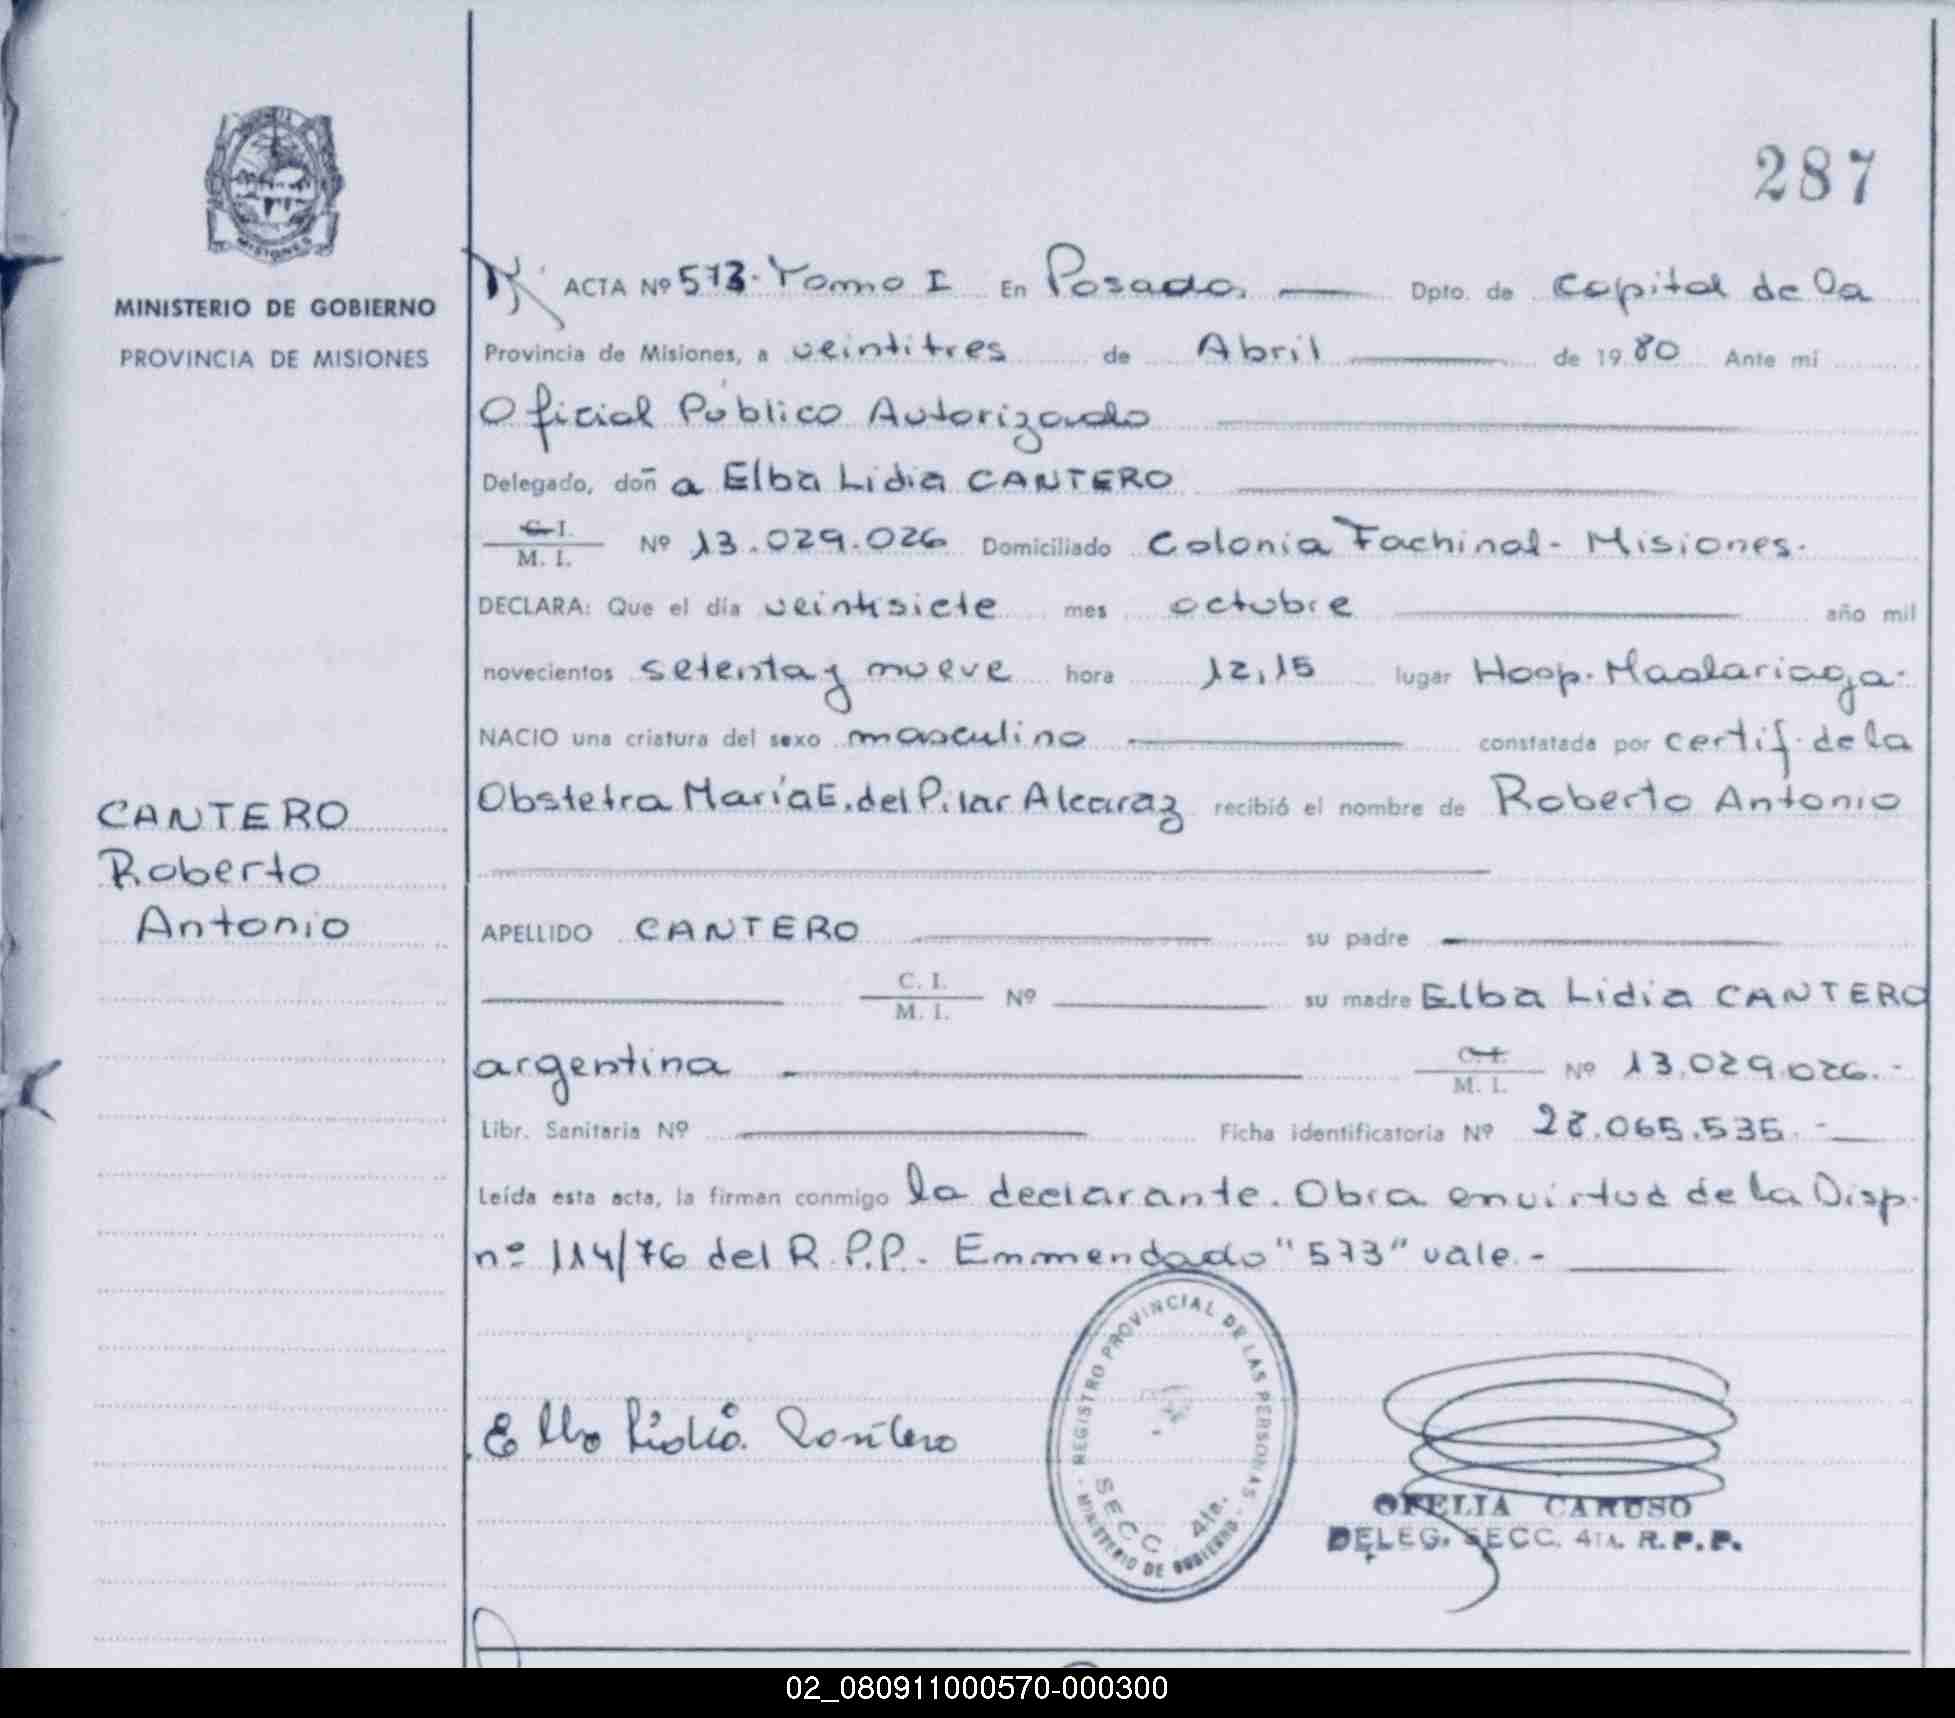 287
MISIONES
MINISTERIO DE GOBIERNO
PROVINCIA DE MISIONES
ACTA Nº 573. Tomo I En Posadas Dpto. de Capital de la
Provincia de Misiones, a veintitres de Abril de 1980 Ante mi
Oficial Público Autorizado
Delegado, doña Elba Lidia CANTERO
C. I.
M. I. Nº 13.029.026 Domiciliado Colonia Fachinal - Misiones.
DECLARA: Que el día veintisiete mes octubre año mil
novecientos setenta y nueve hora 12,15 lugar Hosp. Madariaga.
NACIO una criatura del sexo masculino constatada por certif. de la
Obstetra María E. del Pilar Alcaraz recibió el nombre de Roberto Antonio
CANTERO
Roberto
Antonio
APELLIDO CANTERO su padre
C. I.
M. I. Nº su madre Elba Lidia CANTERO
argentina C. I.
M. I. Nº 13.029.026.-
Libr. Sanitaria Nº Ficha identificatoria Nº 28.065.535.-
Leída esta acta, la firman conmigo la declarante. Obra en virtud de la Disp.
nº 114/76 del R.P.P.- Emmendado "573" vale.-
Elba Lidia Cantero
REGISTRO PROVINCIAL DE LAS PERSONAS - MINISTERIO DE GOBIERNO -
SECC. 4ta.
OFELIA CARUSO
DELEG. SECC. 4TA. R.P.P.
02_080911000570-000300